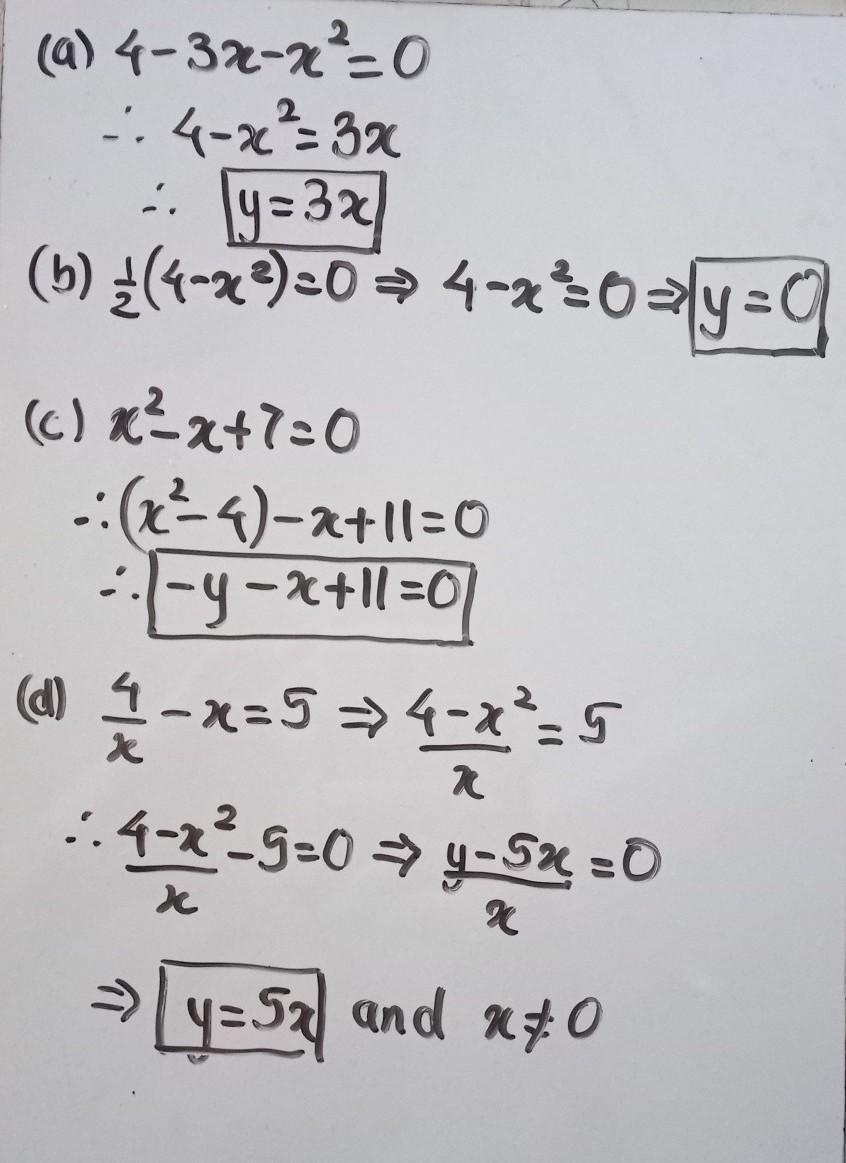 (a) 4-3x-x²=0
∴ 4-x²=3x
∴ y=3x
(b) ½(4-x²)=0 ⇒ 4-x²=0 ⇒ y=0
(c) x²-x+7=0
∴ (x²-4)-x+11=0
∴ -y-x+11=0
(d) 4/x - x = 5 ⇒ (4-x²)/x = 5
∴ (4-x²)/x - 5=0 ⇒ (y-5x)/x = 0
⇒ y=5x and x≠0